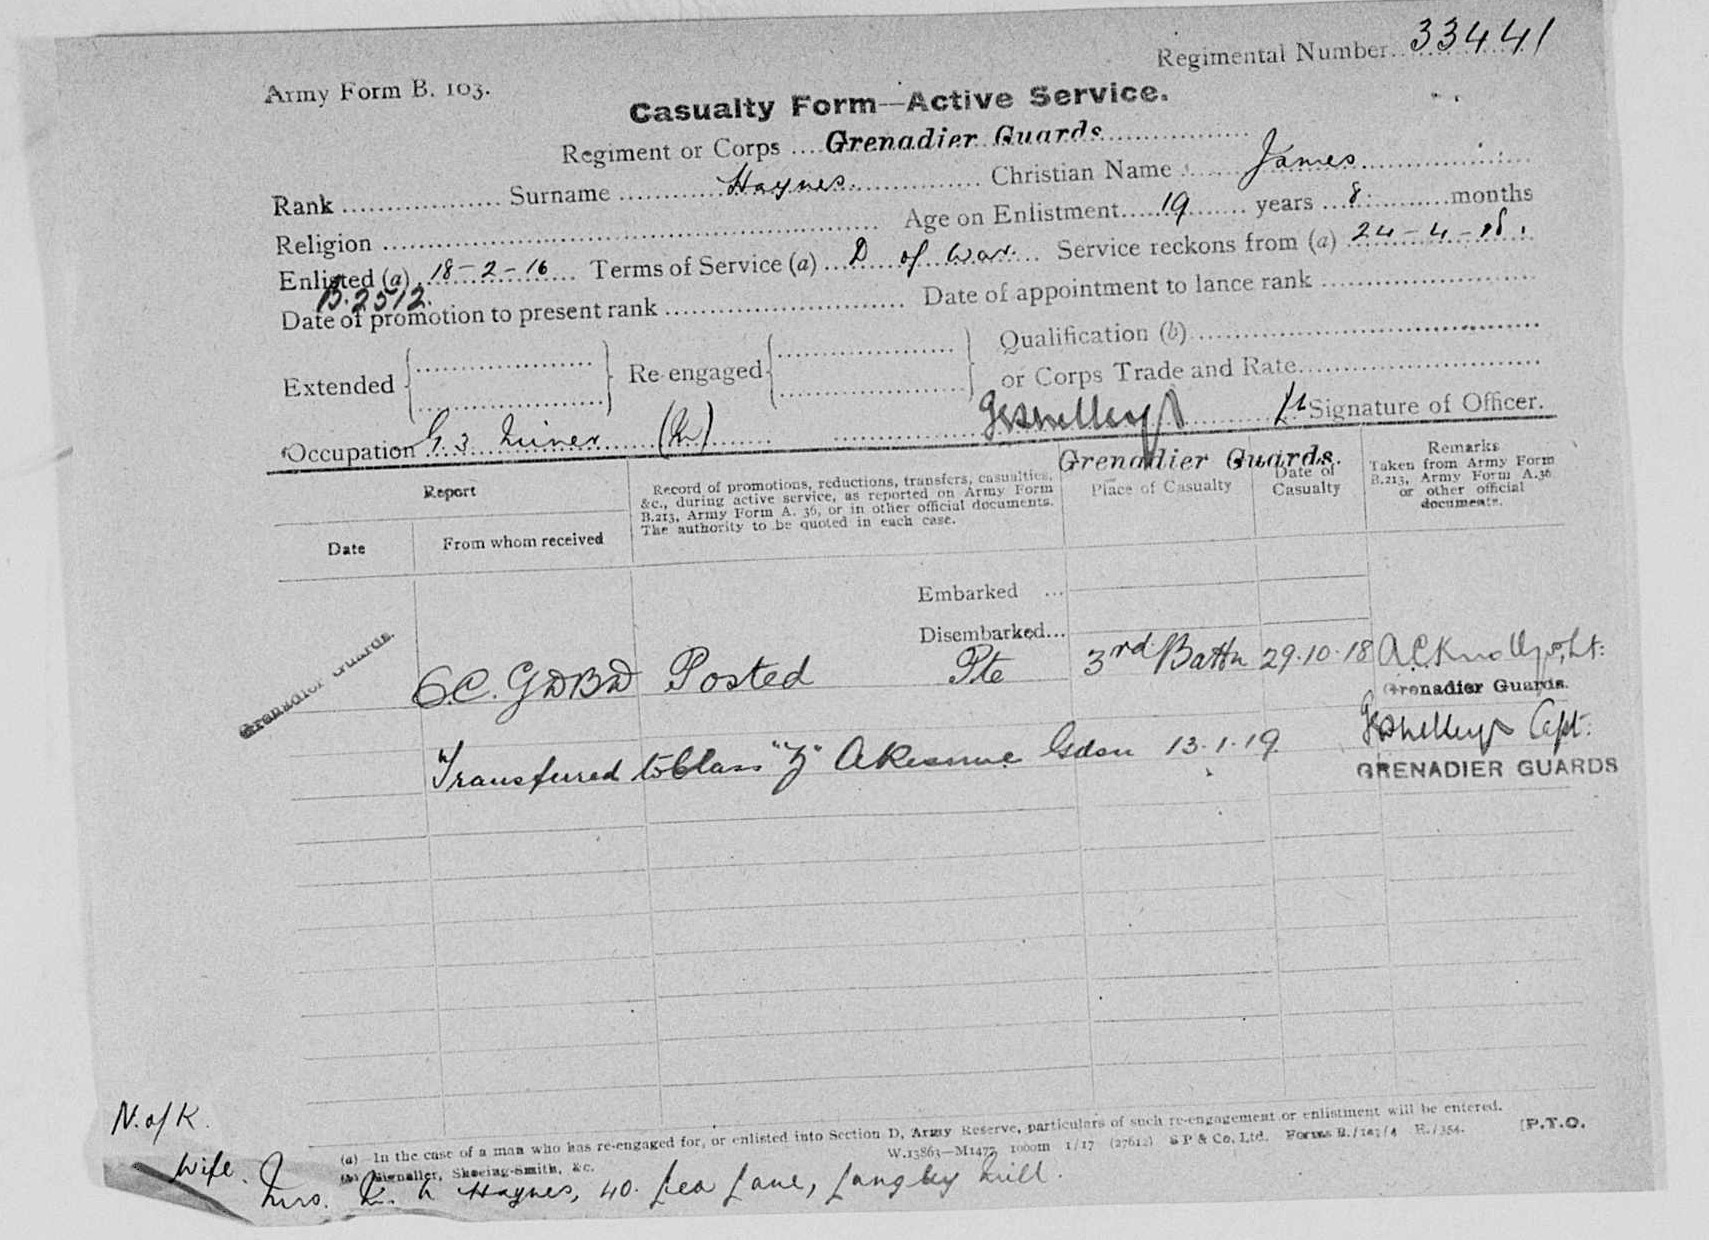 Regimental Number 33441
Army Form B. 103.
Casualty Form—Active Service.
Regiment or Corps Grenadier Guards
Rank Surname Haynes Christian Name James
Religion Age on Enlistment 19 years 8 months
Enlisted (a) 18-2-16 Terms of Service (a) D of War. Service reckons from (a) 24-4-18.
B.2512.
Date of promotion to present rank Date of appointment to lance rank
Extended Re-engaged Qualification (b)
or Corps Trade and Rate
Occupation G.3 Miner Signature of Officer.
Grenadier Guards.
Report
Date
From whom received
Record of promotions, reductions, transfers, casualties,
&c., during active service, as reported on Army Form
B.213, Army Form A. 36, or in other official documents.
The authority to be quoted in each case.
Place of Casualty
Date of
Casualty
Remarks
Taken from Army Form
B.213, Army Form A.36
or other official
documents.
Embarked ...
Disembarked...
Grenadier Guards.
Posted Pte 3rd Battn 29.10.18
Grenadier Guards.
Transferred to Class "Z" A Reserve 13.1.19 Capt.
GRENADIER GUARDS
N. of K.
(a) In the case of a man who has re-engaged for, or enlisted into Section D, Army Reserve, particulars of such re-engagement or enlistment will be entered.
(b) Signaller, Shoeing-Smith, &c. W.13863—M1477 1000m 1/17 (27612) S P & Co., Ltd. Forms B./103/4 E./354. [P.T.O.
Wife. Mrs. Haynes, 40. Lea Lane, Langley Mill.